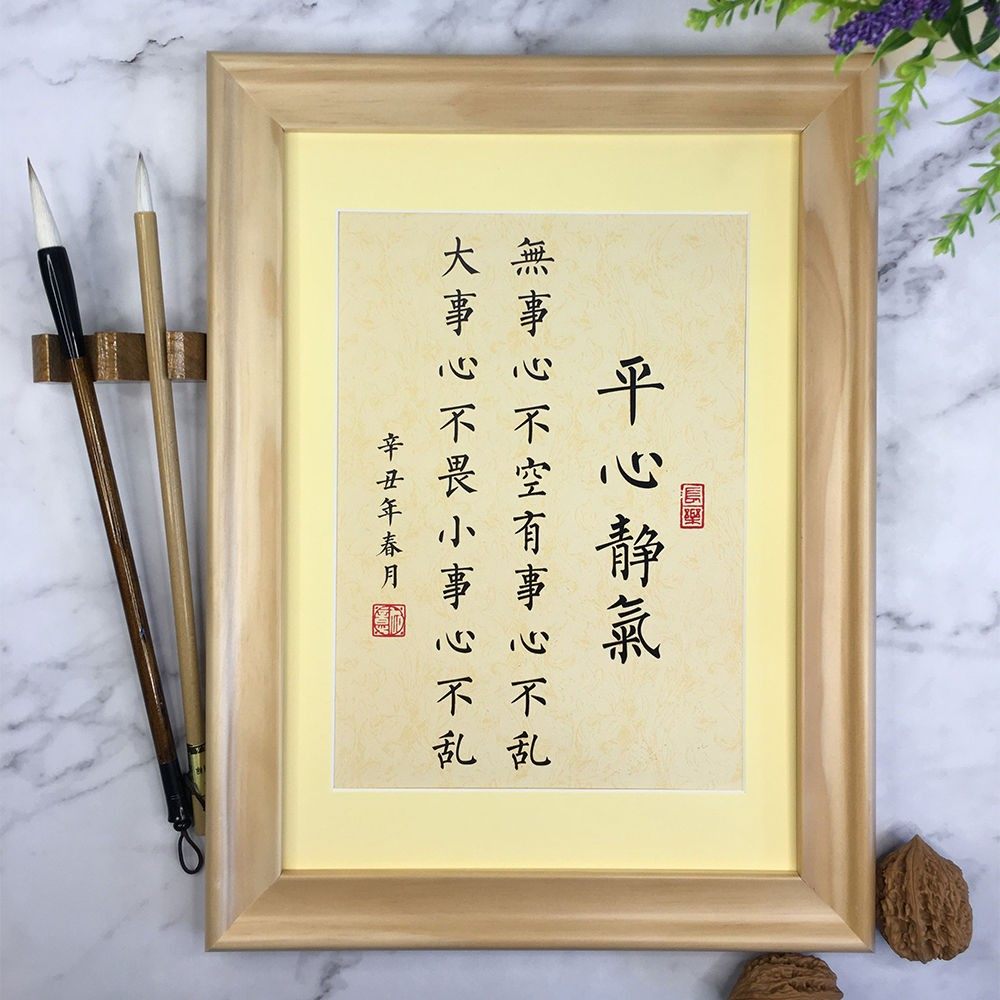 平心静氣
無事心不空有事心不乱
大事心不畏小事心不乱
辛丑年春月